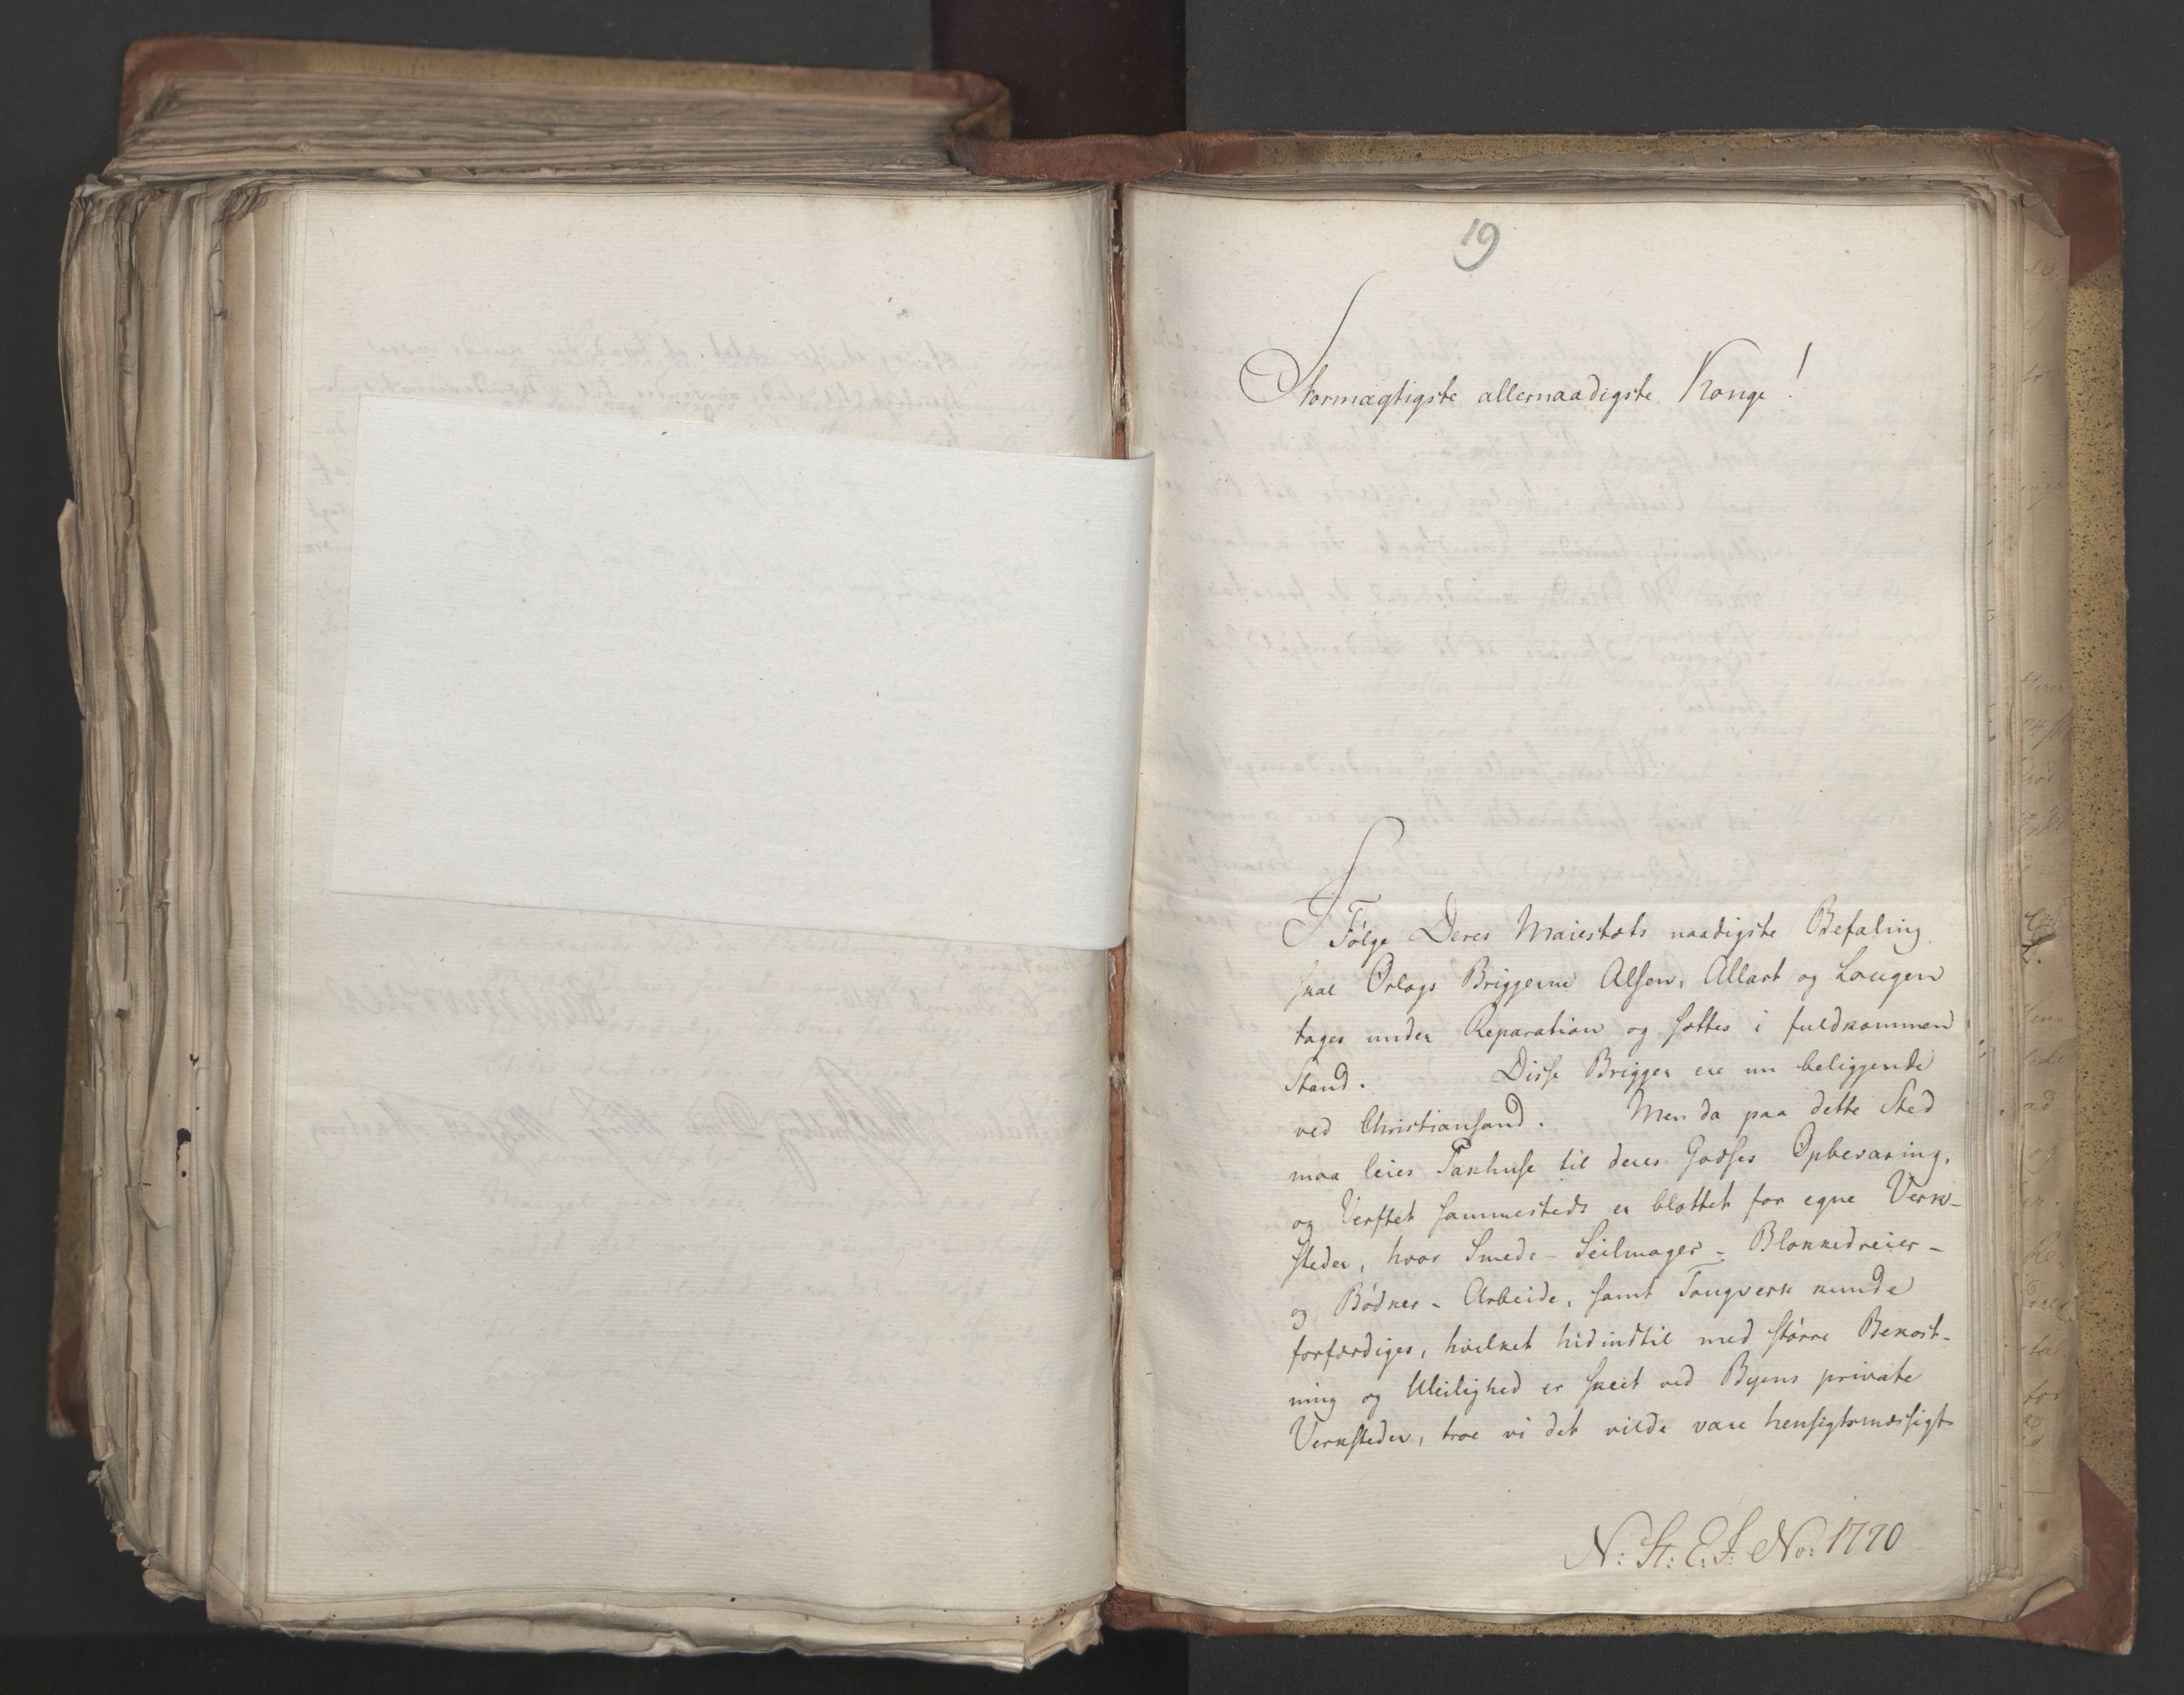 19
Stormægtigste allernaadigste Konge!
I Følge Deres Maiestæts naadigste Befaling
skal Orlogs Briggerne Alsen, Allart og Lougen
tages under Reparation og sættes i fuldkommen
Stand. Disse Brigger ere nu beliggende
ved Christiansand. Men da paa dette Sted
maa leies Pakhuse til deres Godses Opbevaring,
og Verftet sammesteds er blottet for egne Verk-
steder, hvor Smede- Seilmager- Blokkedreier-
og Bødker- Arbeide, samt Tougverk kunde
forfærdiges, hvilket hidindtil med større Bekost-
ning og Uleilighed er skeet ved Byens private
Verksteder, troe vi det vilde være hensigtsmæssigt
N: St: E. J. No: 1770